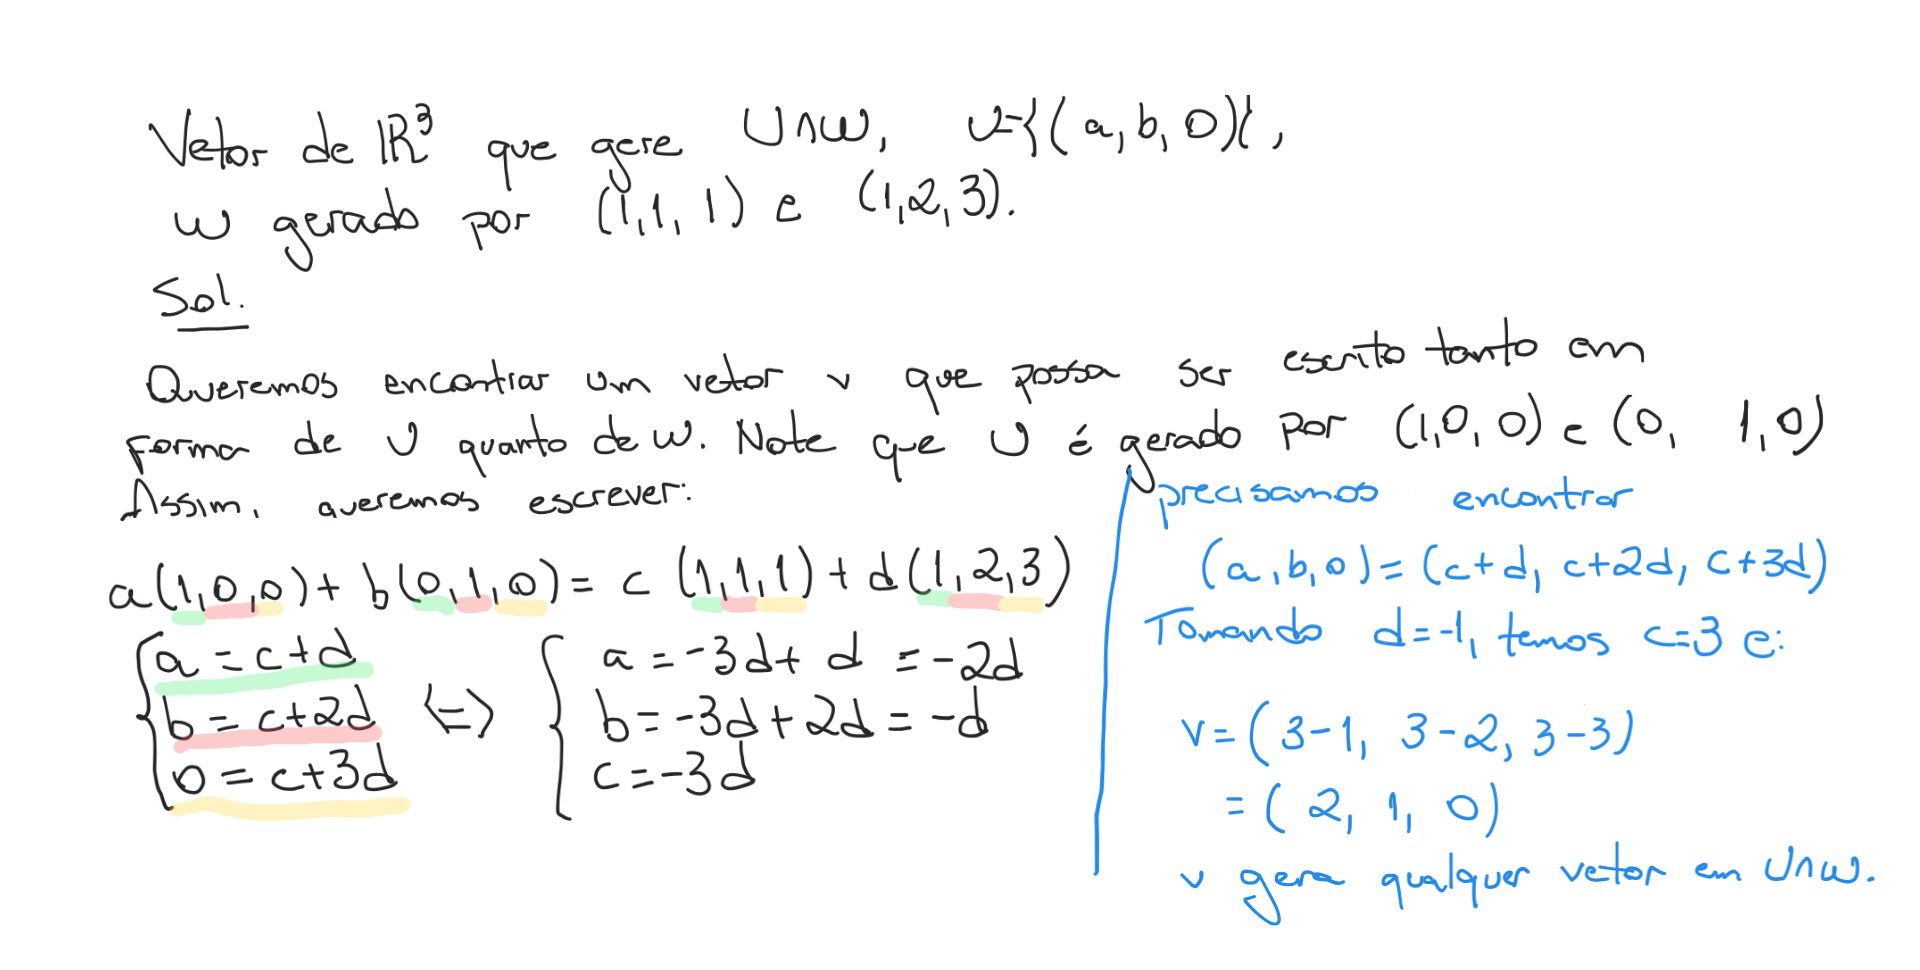 Vetor de ℝ³ que gere U∩W, U={(a,b,0)},
W gerado por (1,1,1) e (1,2,3).
Sol.
Queremos encontrar um vetor v que possa ser escrito tanto em
forma de U quanto de W. Note que U é gerado por (1,0,0) e (0, 1,0)
Assim, queremos escrever:
a(1,0,0)+ b(0,1,0)= c (1,1,1)+ d(1,2,3)
a = c+d
b = c+2d
0 = c+3d
<=>
a = -3d+ d = -2d
b = -3d+2d = -d
c = -3d
precisamos encontrar
(a,b,0)=(c+d, c+2d, c+3d)
Tomando d=-1, temos c=3 e:
v= (3-1, 3-2, 3-3)
= (2, 1, 0)
v gera qualquer vetor em U∩W.